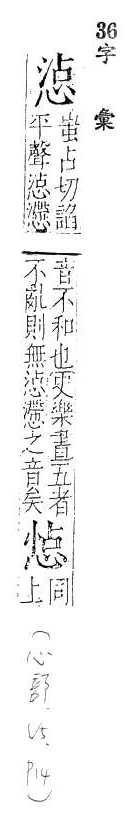 36字
彙
惉
蚩占切諂
平聲惉懘
音不和也史樂書五者
不亂則無惉懘之音矣
惉
同
上
(心部, V5, P14)